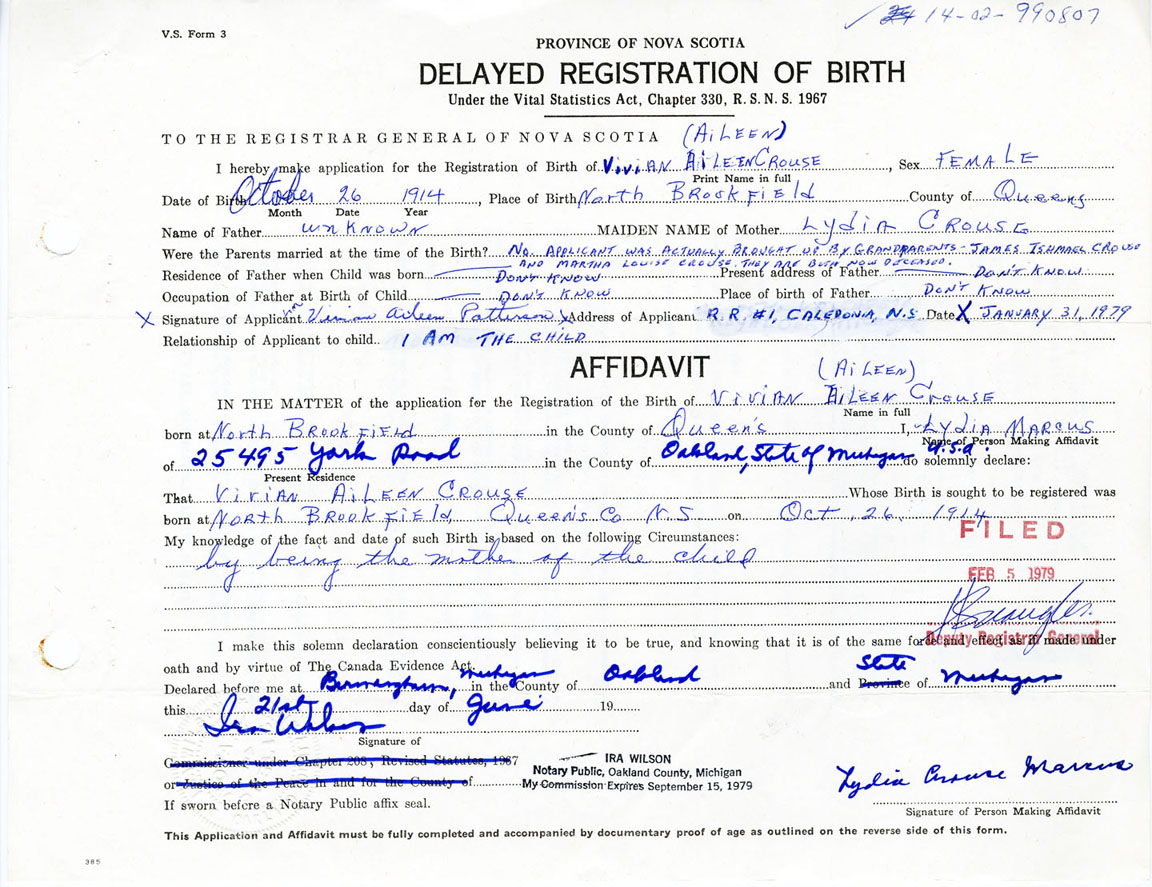 14-02-990807
V.S. Form 3
PROVINCE OF NOVA SCOTIA
DELAYED REGISTRATION OF BIRTH
Under the Vital Statistics Act, Chapter 330, R. S. N. S. 1967
TO THE REGISTRAR GENERAL OF NOVA SCOTIA (AiLEEN)
I hereby make application for the Registration of Birth of ViviAN AiLEEN CROUSE, Sex FEMALE
Print Name in full
Date of Birth October 26 1914, Place of Birth North BROOKFiELD County of Queens
Month Date Year
Name of Father unKNOWN MAIDEN NAME of Mother LYDiA CROUSE
Were the Parents married at the time of the Birth? No. APPLICANT WAS ACTUALLY BROUGHT UP BY GRANDPARENTS - JAMES ISHMAEL CROUSE
AND MARTHA LOUISE CROUSE. THEY ARE BOTH NOW DECEASED.
Residence of Father when Child was born DON'T KNOW Present address of Father DON'T KNOW
Occupation of Father at Birth of Child DON'T KNOW Place of birth of Father DON'T KNOW
X Signature of Applicant Vivian Aileen Patterson X Address of Applicant R.R. #1, CALEDONIA, N.S. Date X JANUARY 31, 1979
Relationship of Applicant to child I AM THE CHILD
AFFIDAVIT (AiLEEN)
IN THE MATTER of the application for the Registration of the Birth of ViViAN AiLEEN CROUSE
Name in full
born at North BROOKFiELD in the County of Queen's I, LYDiA MARCUS
Name of Person Making Affidavit
of 25495 York Road in the County of Oakland, State of Michigan U.S.A. do solemnly declare:
Present Residence
That ViViAN AiLEEN CROUSE Whose Birth is sought to be registered was
born at NORTH BROOKFiELD, QUEEN'S Co N.S on Oct. 26, 1914
FILED
My knowledge of the fact and date of such Birth is based on the following Circumstances:
by being the mother of the child
FEB 5 1979
Deputy Registrar General
I make this solemn declaration conscientiously believing it to be true, and knowing that it is of the same force and effect as if made under
oath and by virtue of The Canada Evidence Act.
Declared before me at Birmingham, Michigan in the County of Oakland and Province State of Michigan
this 21st day of June 19
Ira Wilson
Signature of
Commissioner under Chapter 208, Revised Statutes, 1967
or Justice of the Peace in and for the County of
IRA WILSON
Notary Public, Oakland County, Michigan
My Commission Expires September 15, 1979
Lydia Crouse Marcus
If sworn before a Notary Public affix seal.
Signature of Person Making Affidavit
This Application and Affidavit must be fully completed and accompanied by documentary proof of age as outlined on the reverse side of this form.
385